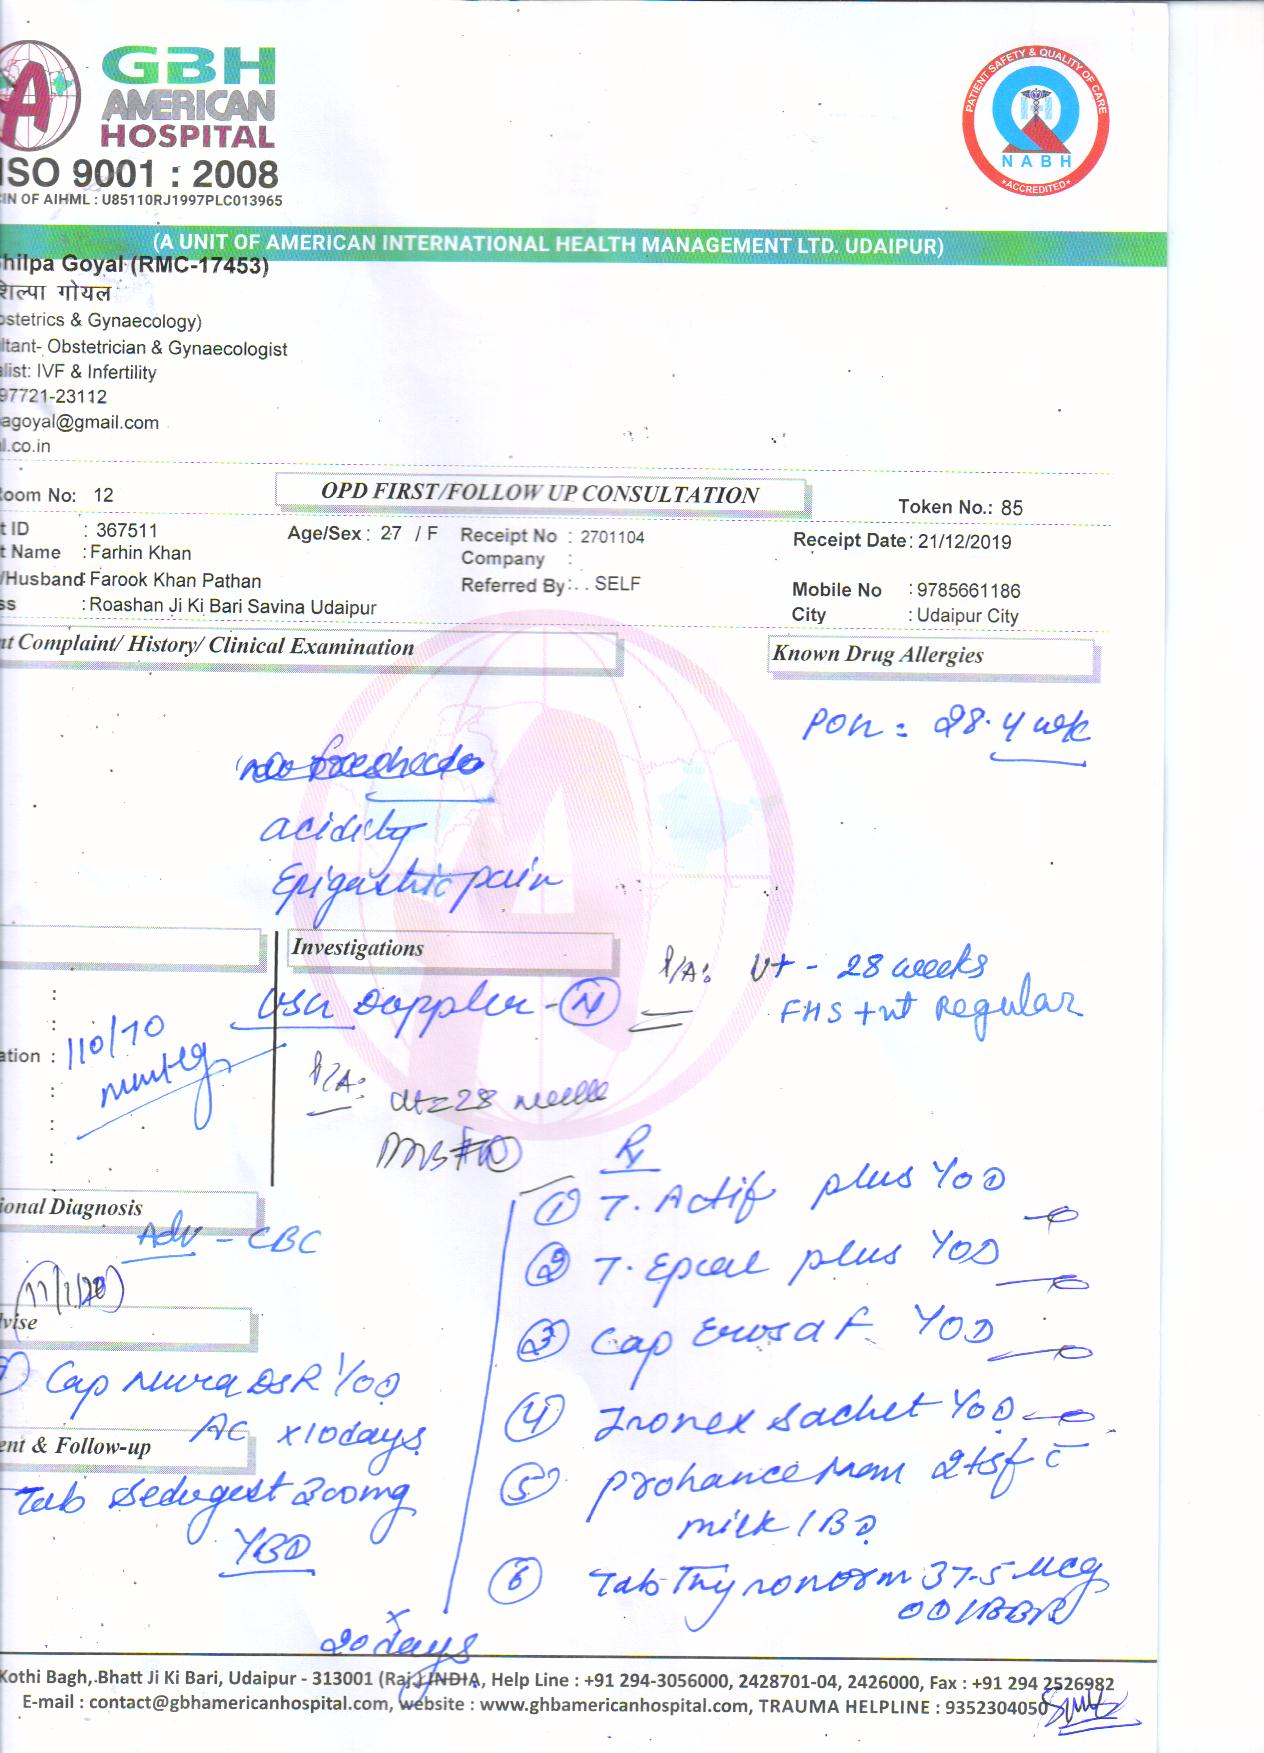 GBH
AMERICAN
HOSPITAL
ISO 9001 : 2008
CIN OF AIHML : U85110RJ1997PLC013965
PATIENT SAFETY & QUALITY OF CARE
NABH
ACCREDITED
(A UNIT OF AMERICAN INTERNATIONAL HEALTH MANAGEMENT LTD. UDAIPUR)
hilpa Goyal (RMC-17453)
शिल्पा गोयल
ostetrics & Gynaecology)
ltant- Obstetrician & Gynaecologist
alist: IVF & Infertility
97721-23112
agoyal@gmail.com
l.co.in
oom No: 12
OPD FIRST/FOLLOW UP CONSULTATION
Token No.: 85
t ID : 367511 Age/Sex : 27 / F Receipt No : 2701104 Receipt Date: 21/12/2019
t Name : Farhin Khan Company :
/Husband: Farook Khan Pathan Referred By: . . SELF Mobile No : 9785661186
ss : Roashan Ji Ki Bari Savina Udaipur City : Udaipur City
nt Complaint/ History/ Clinical Examination
Known Drug Allergies
28.4 wk
acidity
Epigastric pain
Investigations
P/A: Ut - 28 weeks
FHS +nt Regular
Doppler - N
ation : 110/70
mmHg
P/A:
Rx
① T. Actif plus
② T. Epcal plus
③ Cap
④ Ironex sachet
⑤ Prohance Mom 2tsf c̄
milk / BD
⑥ Tab Thyronorm 37.5 mcg
ional Diagnosis
Adv - CBC
11/1/20
vise
Cap DSR 1/OD
AC x10days
ent & Follow-up
Tab 200mg
x
20 days
Kothi Bagh,.Bhatt Ji Ki Bari, Udaipur - 313001 (Raj.) INDIA, Help Line : +91 294-3056000, 2428701-04, 2426000, Fax : +91 294 2526982
E-mail : contact@gbhamericanhospital.com, website : www.ghbamericanhospital.com, TRAUMA HELPLINE : 9352304050